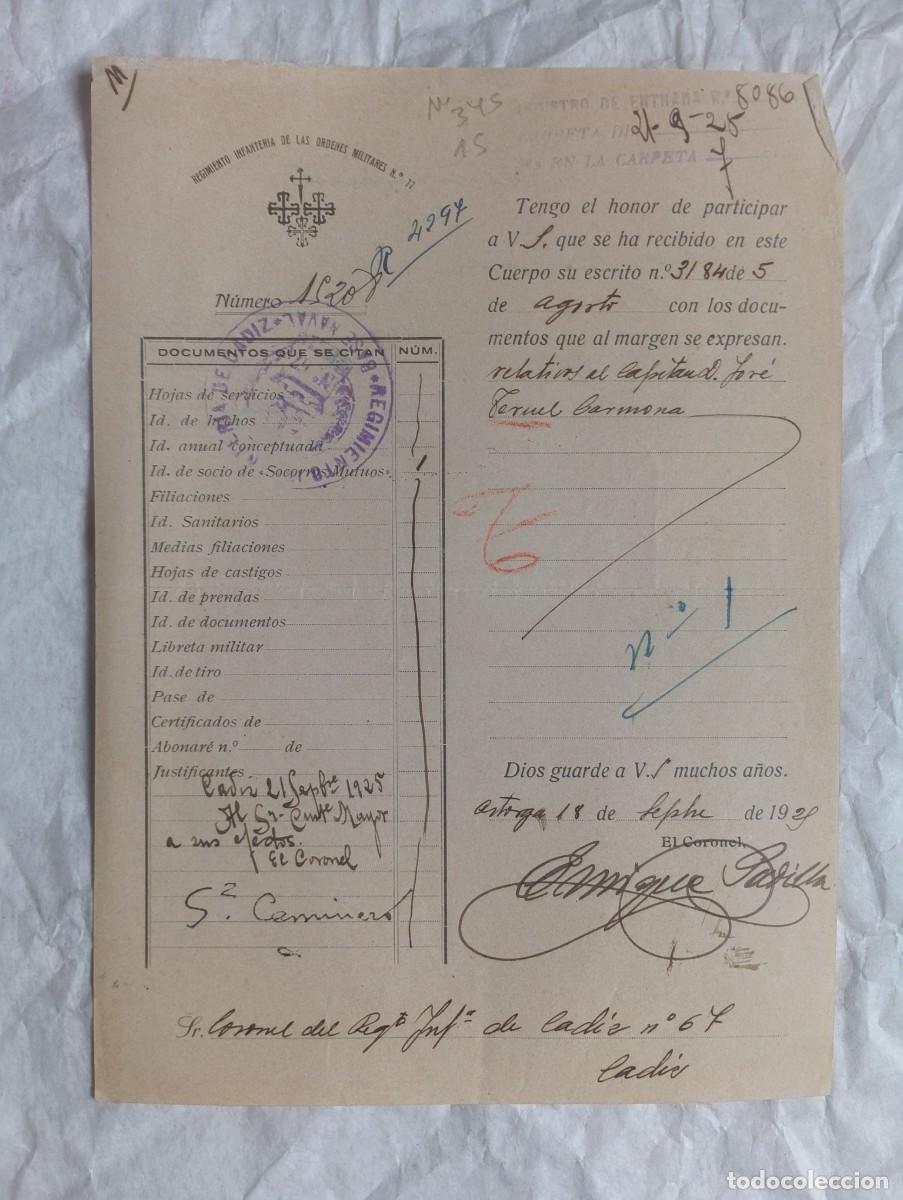 M
Nº 345
15
REGISTRO DE ENTRADA N.º 8086
CARPETA DE 21-9-25
EN LA CARPETA
REGIMIENTO INFANTERIA DE LAS ORDENES MILITARES N.º 77
R 4297
Número 1520
REGIMIENTO
BASE NAVAL
DOCUMENTOS QUE SE CITAN NÚM.
Hojas de servicios
Id. de hechos
Id. anual conceptuada
Id. de socio de «Socorros Mutuos» 1
Filiaciones
Id. Sanitarios
Medias filiaciones
Hojas de castigos
Id. de prendas
Id. de documentos
Libreta militar
Id. de tiro
Pase de
Certificados de
Abonaré n.º de
Justificantes
Cadiz 21 Sepbre 1925
Al Sr. Cmte Mayor
a sus efectos.
El Coronel
Caminero
Tengo el honor de participar
a V.S. que se ha recibido en este
Cuerpo su escrito n.º 3184 de 5
de agosto con los docu-
mentos que al margen se expresan.
relativos al Capitan D. José
Teruel Carmona
Nº 1
Dios guarde a V.S muchos años.
Astorga 18 de Sepbre de 1925
El Coronel,
Enrique Padilla
Sr. Coronel del Regto Infª de Cadiz nº 67
Cadiz
todocoleccion